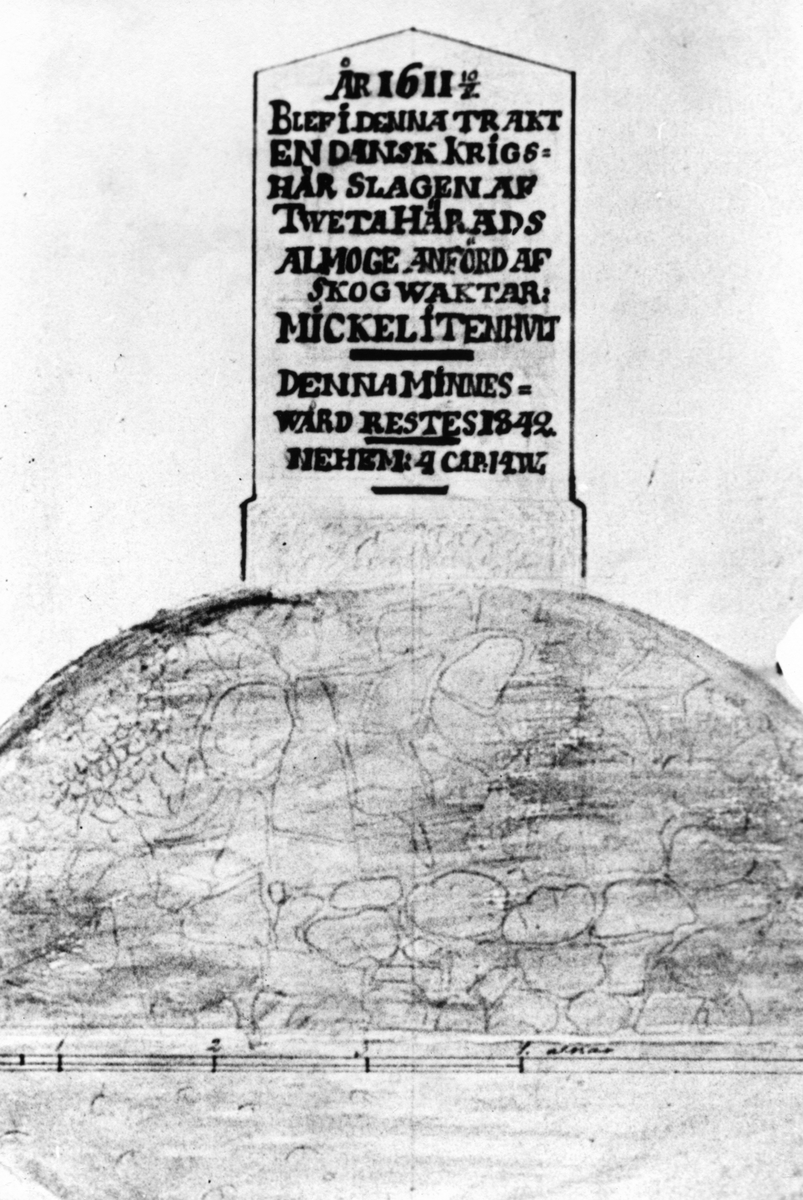 ÅR 1611 10/2
BLEF I DENNA TRAKT
EN DANSK KRIGS=
HÄR SLAGEN AF
TWETA HÄRADS
ALMOGE ANFÖRD AF
SKOGWAKTAR:
MICKEL I TENHVLT
DENNA MINNES=
WÅRD RESTES 1842.
NEHEM: 4 CAP: 14 W.
1 2 3 4. alnar